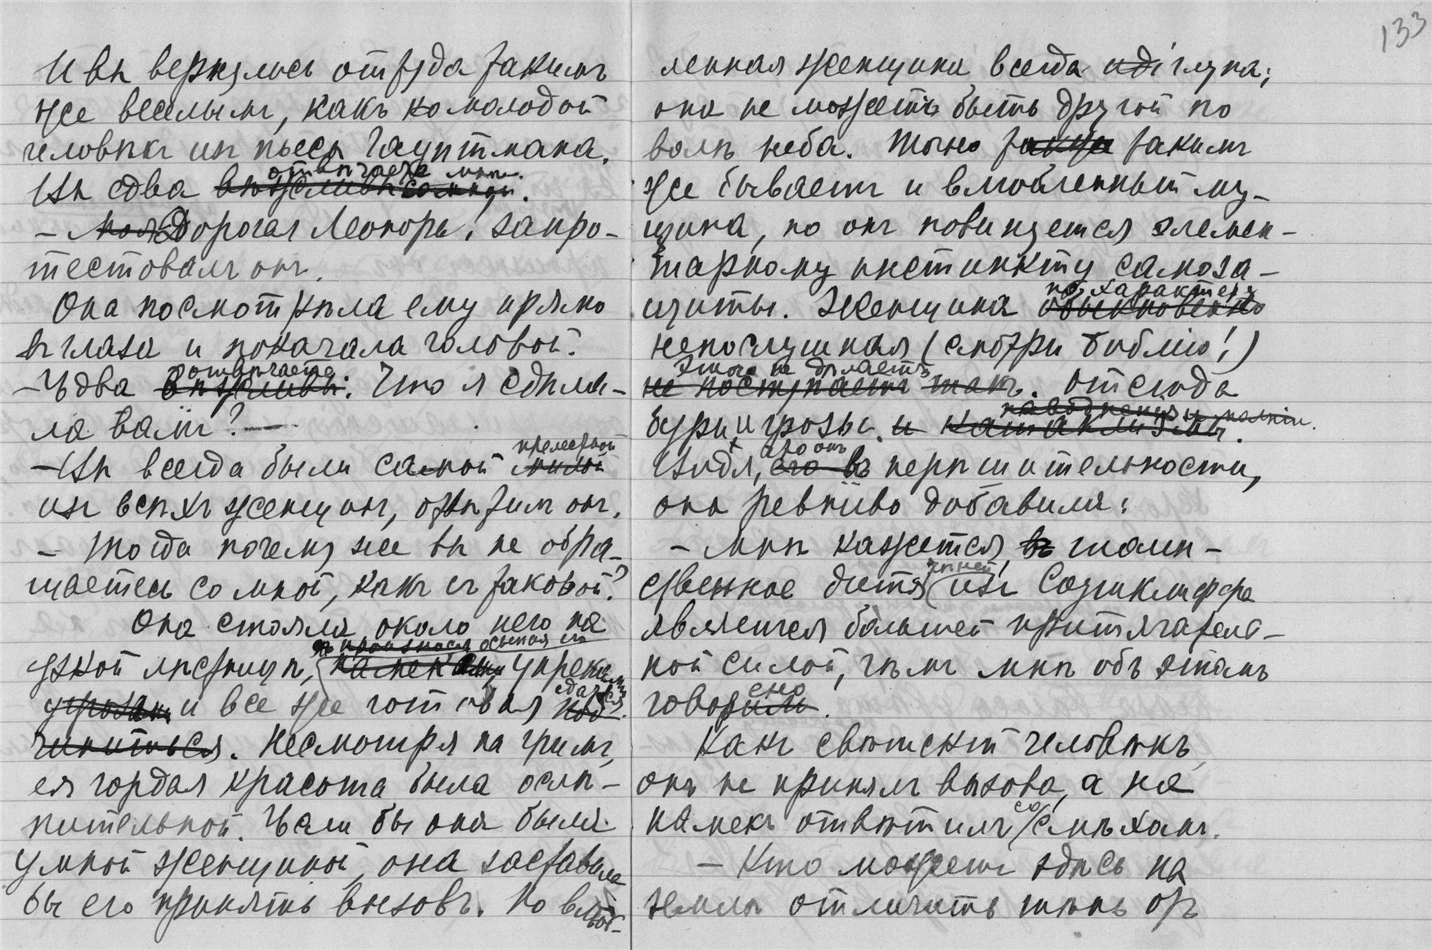 133
И вы вернулись оттуда такимъ
же веселымъ, какъ молодой
человѣкъ изъ пьесы Гауптмана.
Вы едва отвѣчаете мнѣ.
— Дорогая Леонора! запро-
тестовалъ онъ.
Она посмотрѣла ему прямо
въ глаза и покачала головой.
— Едва отвѣчаете. Что я сдѣла-
ла вамъ? —
— Вы всегда были самой прелестной
изъ всѣхъ женщинъ, отвѣтилъ онъ.
— Тогда почему же вы не обра-
щаетесь со мной, какъ съ таковой?
Она стояла около него на
узкой лѣстницѣ, осыпая его упреками
и все же готовая сдаться.
Несмотря на гримъ,
ея гордая красота была ослѣ-
пительной. Если бы она была
умной женщиной, она заставила
бы его принять вызовъ. Но влюб-
ленная женщина всегда глупа;
она не можетъ быть другой по
волѣ неба. Точно такимъ
же бываетъ и влюбленный му-
щина, но онъ повинуется элемен-
тарному инстинкту самоза-
щиты. Женщина по характеру
непослушная (смотри библію!)
этого не дѣлаетъ. Отсюда
бури и грозы, наводненія и молніи.
Видя, что онъ въ нерѣшительности,
она ревниво добавила:
— Мнѣ кажется, таин-
ственное дитя изъ Саутклиффа
является большей притягатель-
ной силой, чѣмъ мнѣ объ этомъ
говорено.
Какъ свѣтскій человѣкъ,
онъ не принялъ вызова, а на
намекъ отвѣтилъ со смѣхомъ.
— Кто можетъ здѣсь на
землѣ отличить тѣнь отъ